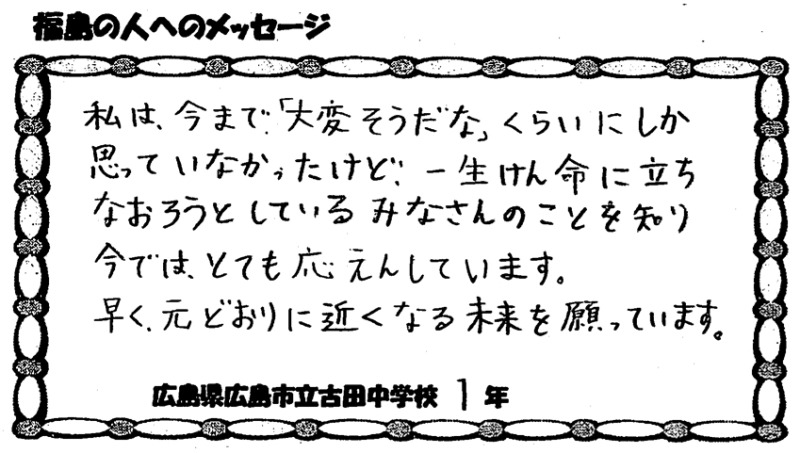 福島の人へのメッセージ
私は、今まで「大変そうだな」くらいにしか
思っていなかったけど、一生けん命に立ち
なおろうとしているみなさんのことを知り
今では、とても応えんしています。
早く、元どおりに近くなる未来を願っています。
広島県広島市立古田中学校 1年